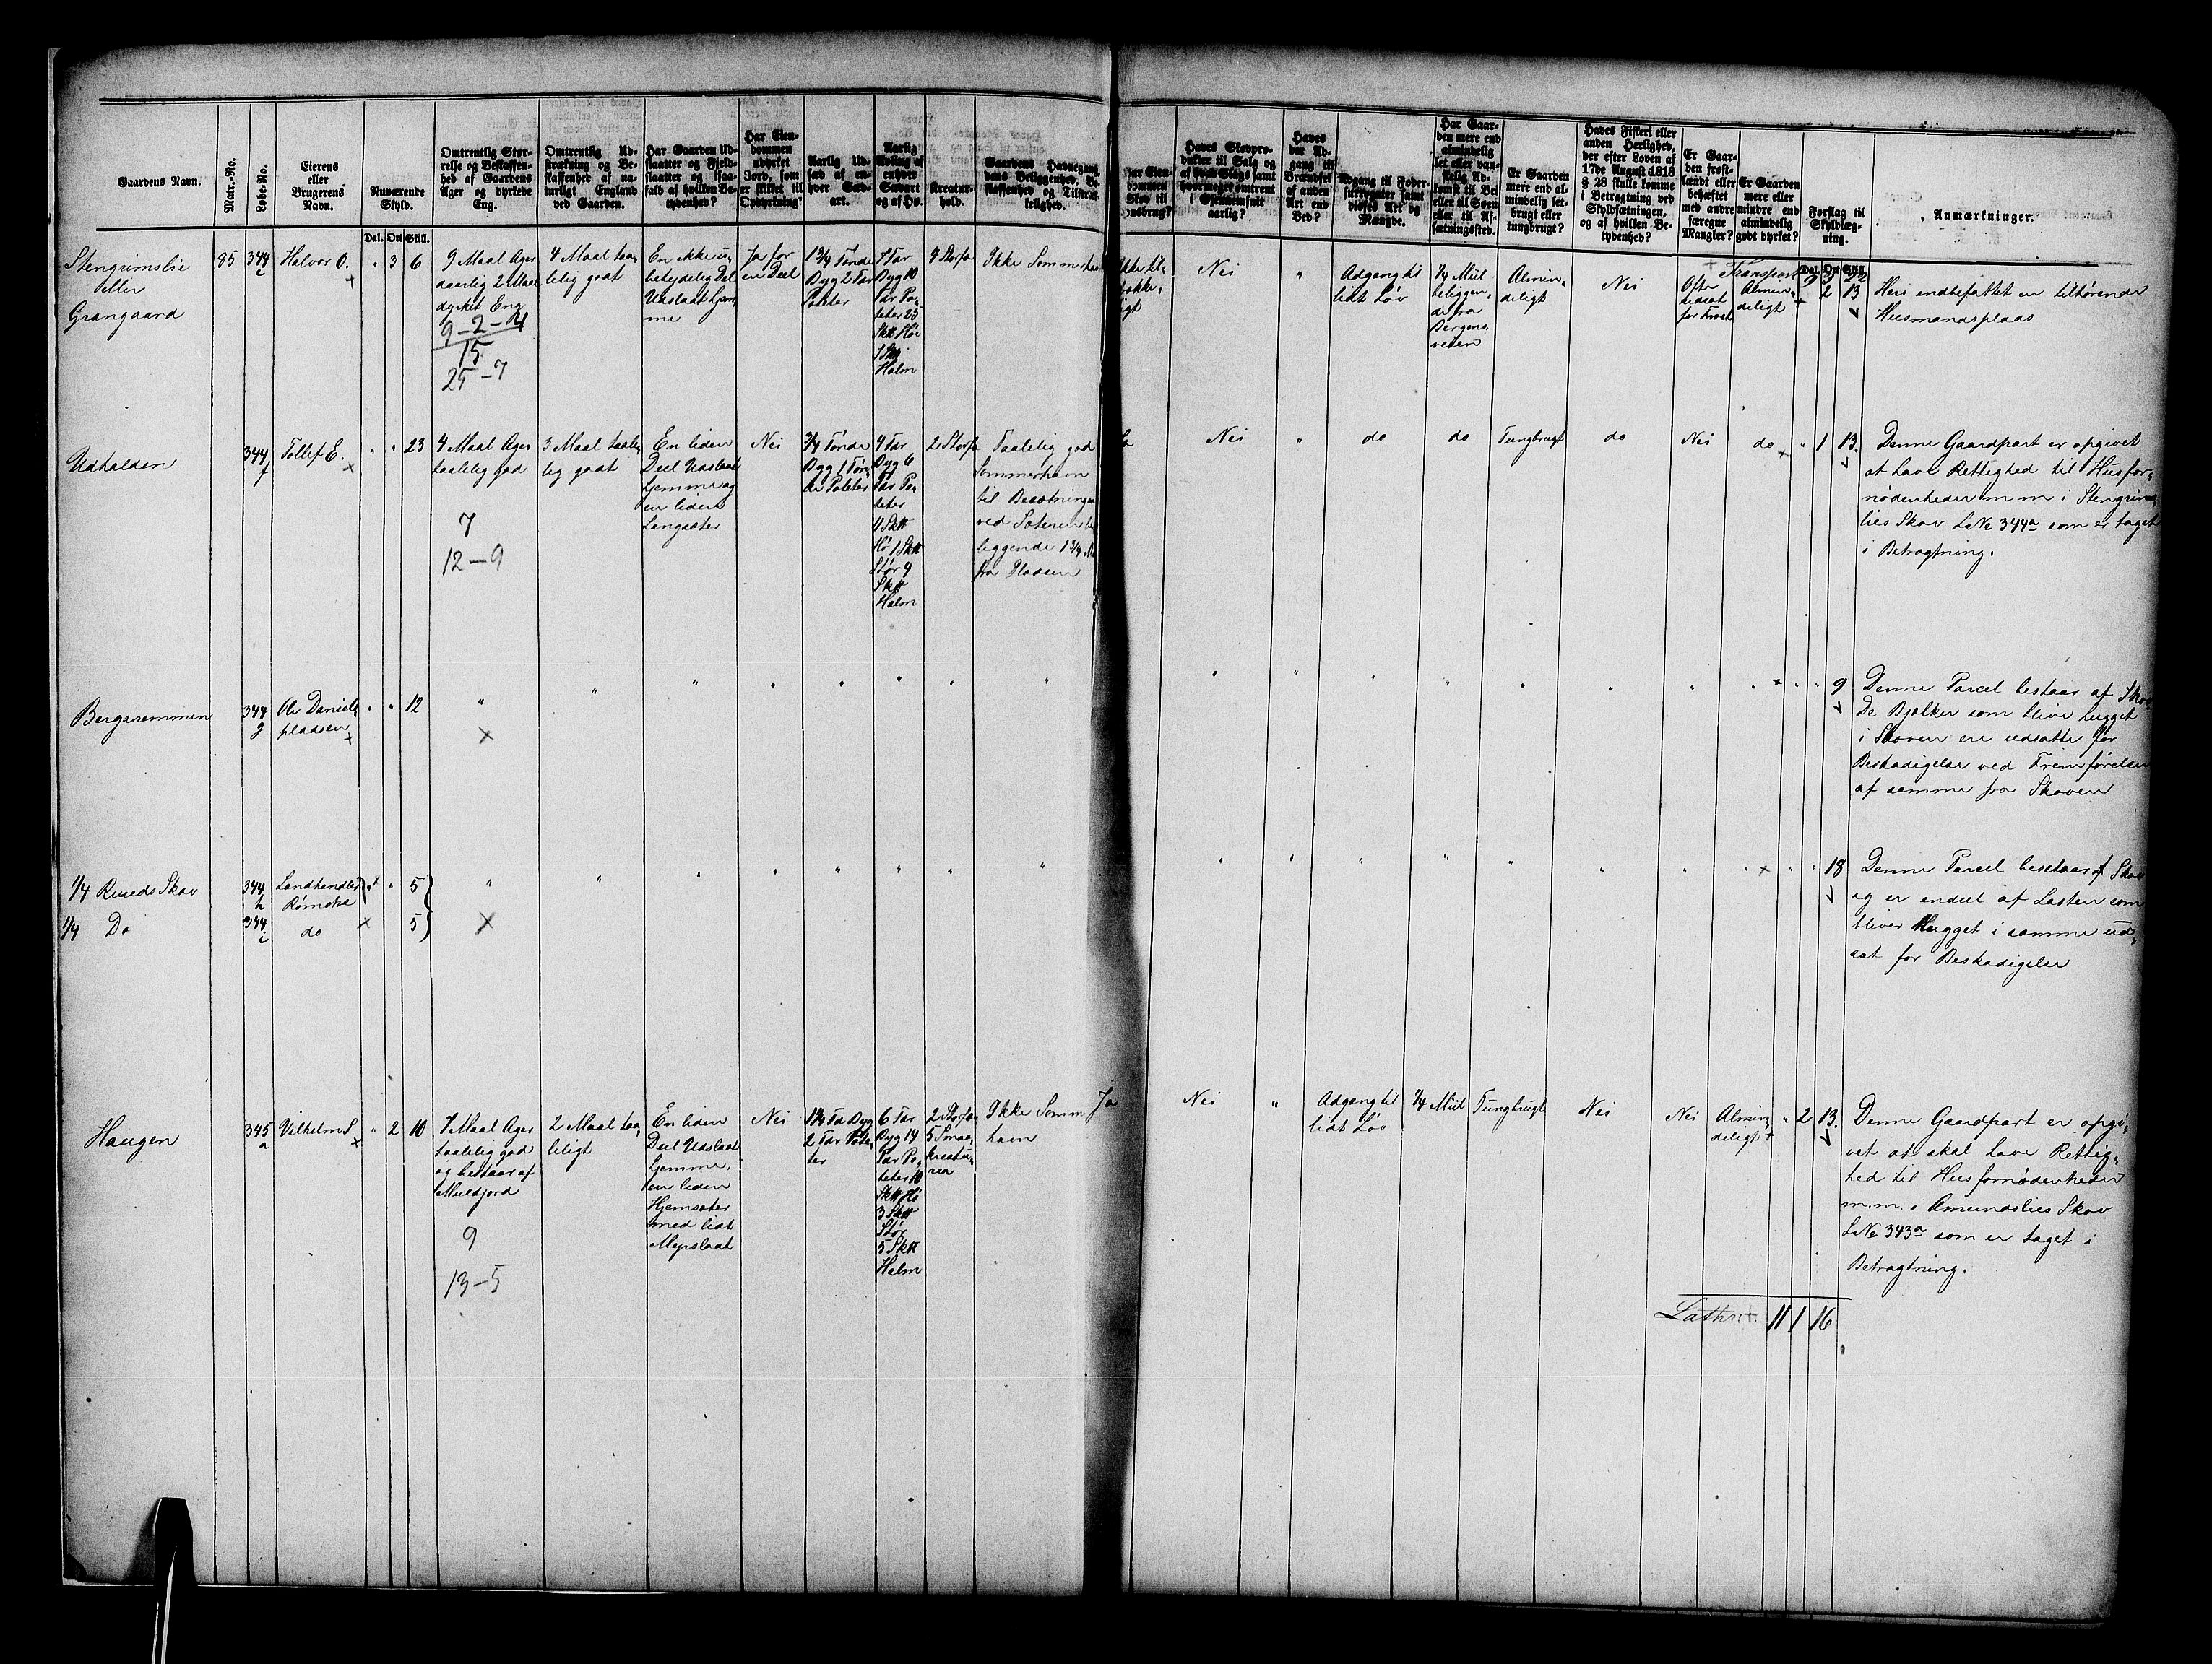 Gaardens Navn.
Matr.-No.
Løbe-No.
Eierens
eller
Brugerens
Navn.
Nuværende
Skyld.
Omtrentlig Stør-
relse og Beskaffen-
hed af Gaardens
Ager og dyrkede
Eng.
Omtrentlig Ud-
strækning og Be-
skaffenhed af na-
turligt England
ved Gaarden.
Har Gaarden Ud-
slaatter og Fjeld-
slaatter og isaa-
fald af hvilken Be-
tydenhed?
Har Eien-
dommen
udyrket
Jord, som
er skikket til
Opdyrkning?
Aarlig Ud-
sæd af en-
hver Sæd-
art.
Aarlig
Avling af
enhver
Sædart
og af Hø.
Kreatur-
hold.
Gaardens Havnegang,
dens Beliggenhed, Be-
skaffenhed og Tilstræk-
kelighed.
Har Eien-
dommen
Skov til
Husbrug?
Haves Skovpro-
dukter til Salg og
af hvad Slags samt
hvormeget omtrent
i Gjennemsnit
aarlig?
Haves
der Ad-
gang til
Brændsel
af anden
Art end
Ved?
Adgang til Foder-
surrogater samt
disses Art og
Mængde.
Har Gaar-
den mere end
almindelig
let eller van-
skelig Ad-
komst til Vei
eller til Søen
eller til Af-
sætningssted.
Er Gaarden
mere end al-
mindelig let-
brugt eller
tungbrugt?
Haves Fiskeri eller
anden Herlighed,
der efter Loven af
17de August 1818
§ 28 skulle komme
i Betragtning ved
Skyldsætningen,
og af hvilken Be-
tydenhed?
Er Gaar-
den frost-
lændt eller
behæftet
med andre
særegne
Mangler?
Er Gaarden
mere eller
mindre end
almindelig
godt dyrket?
Forslag til
Skyldlæg-
ning.
Anmærkninger.
Dal. Ort Skill.
Transport
Dal. Ort Skill.
Stengrimslie
eller
Grangaard
85
344
e
Halvor O.
" 3 6
9 Maal Ager
aarlig 2 Maal
dyrket Eng
9-2-4
15
25-7
4 Maal taa-
lelig godt
En ikke u-
betydelig Del
Udslaat hjem-
me
Ja for
en Deel
1 3/4 Tønde
Byg 2 Tdr
Poteter
7 Tdr
Byg 10
Tdr Po-
teter 25
Sk℔ Hø
Halm
4 Storfæ
Ikke Sommerhavn
Nei
"
Adgang til
lidt Løv
1/4 Miil
beliggen-
de fra
Bergens-
veien
Almin-
deligt
Nei
Ofte
udsat
for Frost
Almin-
deligt
2 13
Heri indbefattet en tilhørende
Husmandsplads
Udhalden
344
f
Tollef E.
" " 23
4 Maal Ager
taalelig god
7
12-9
3 Maal taale-
lig godt
En liden
Deel Udslaat
hjemme og
en liden
Langsæter
Nei
3/4 Tønde
Byg 1 Tøn-
de Poteter
4 Tdr
Byg 6
Tdr Po-
teter
11 Sk℔
Hø 1 Sk℔
Stør 4
Sk℔
Halm
2 Storfæ
Taalelig god
Sommerhavn
til Besætningen
ved Sæteren
beliggende 1 3/4
fra Pladsen
Nei
"
do
do
Tungbrugt
do
Nei
do
" 1 13
Denne Gaardpart er opgivet
at have Rettighed til Husfor-
nødenheder m m i Stengrims-
lies Skov LNo 344a som er taget
i Betragtning.
Bergeremmen
344
g
Ole Daniels
pladsen
" " 12
" " 9
Denne Parcel bestaar af Skov
De Bjelker som blive hugget
i Skoven ere udsatte for
Beskadigelse ved Fremførelsen
af samme fra Skoven
1/4 Rueds Skov
344
h
Landhandler
Rømcke
" " 5
1/4 Do
344
i
do
5
" " 18
Denne Parcel bestaar af Skov
og er endeel af Lasten som
bliver hugget i samme ud-
sat for Beskadigelse
Haugen
345
a
Vilhelm S
" 2 10
7 Maal Ager
taalelig god
og bestaar af
Muldjord
9
13-5
2 Maal taa-
leligt
En liden
Deel Udslaat
hjemme,
en liden
Hjemsæter
med lidt
Myrslaat
Nei
1 1/4 Td Byg
2 Tdr Pote-
ter
6 Tdr
Byg 14
Tdr Po-
teter 10
Sk℔ Hø
3 Sk℔
Stør
5 Sk℔
Halm
2 Storfæ
5 Smaa-
kreatu-
rer
Ikke Sommer
havn
Ja
Nei
"
Adgang til
lidt Løv
1/4 Miil
Tungbrugt
Nei
Nei
Almin-
deligt
" 2 13
Denne Gaardpart er opgi-
vet at skal have Rettig-
hed til Husfornødenheder
m.m. i Amundslies Skov
LNo 343a som er taget i
Betragtning.
Latus
11 1 16